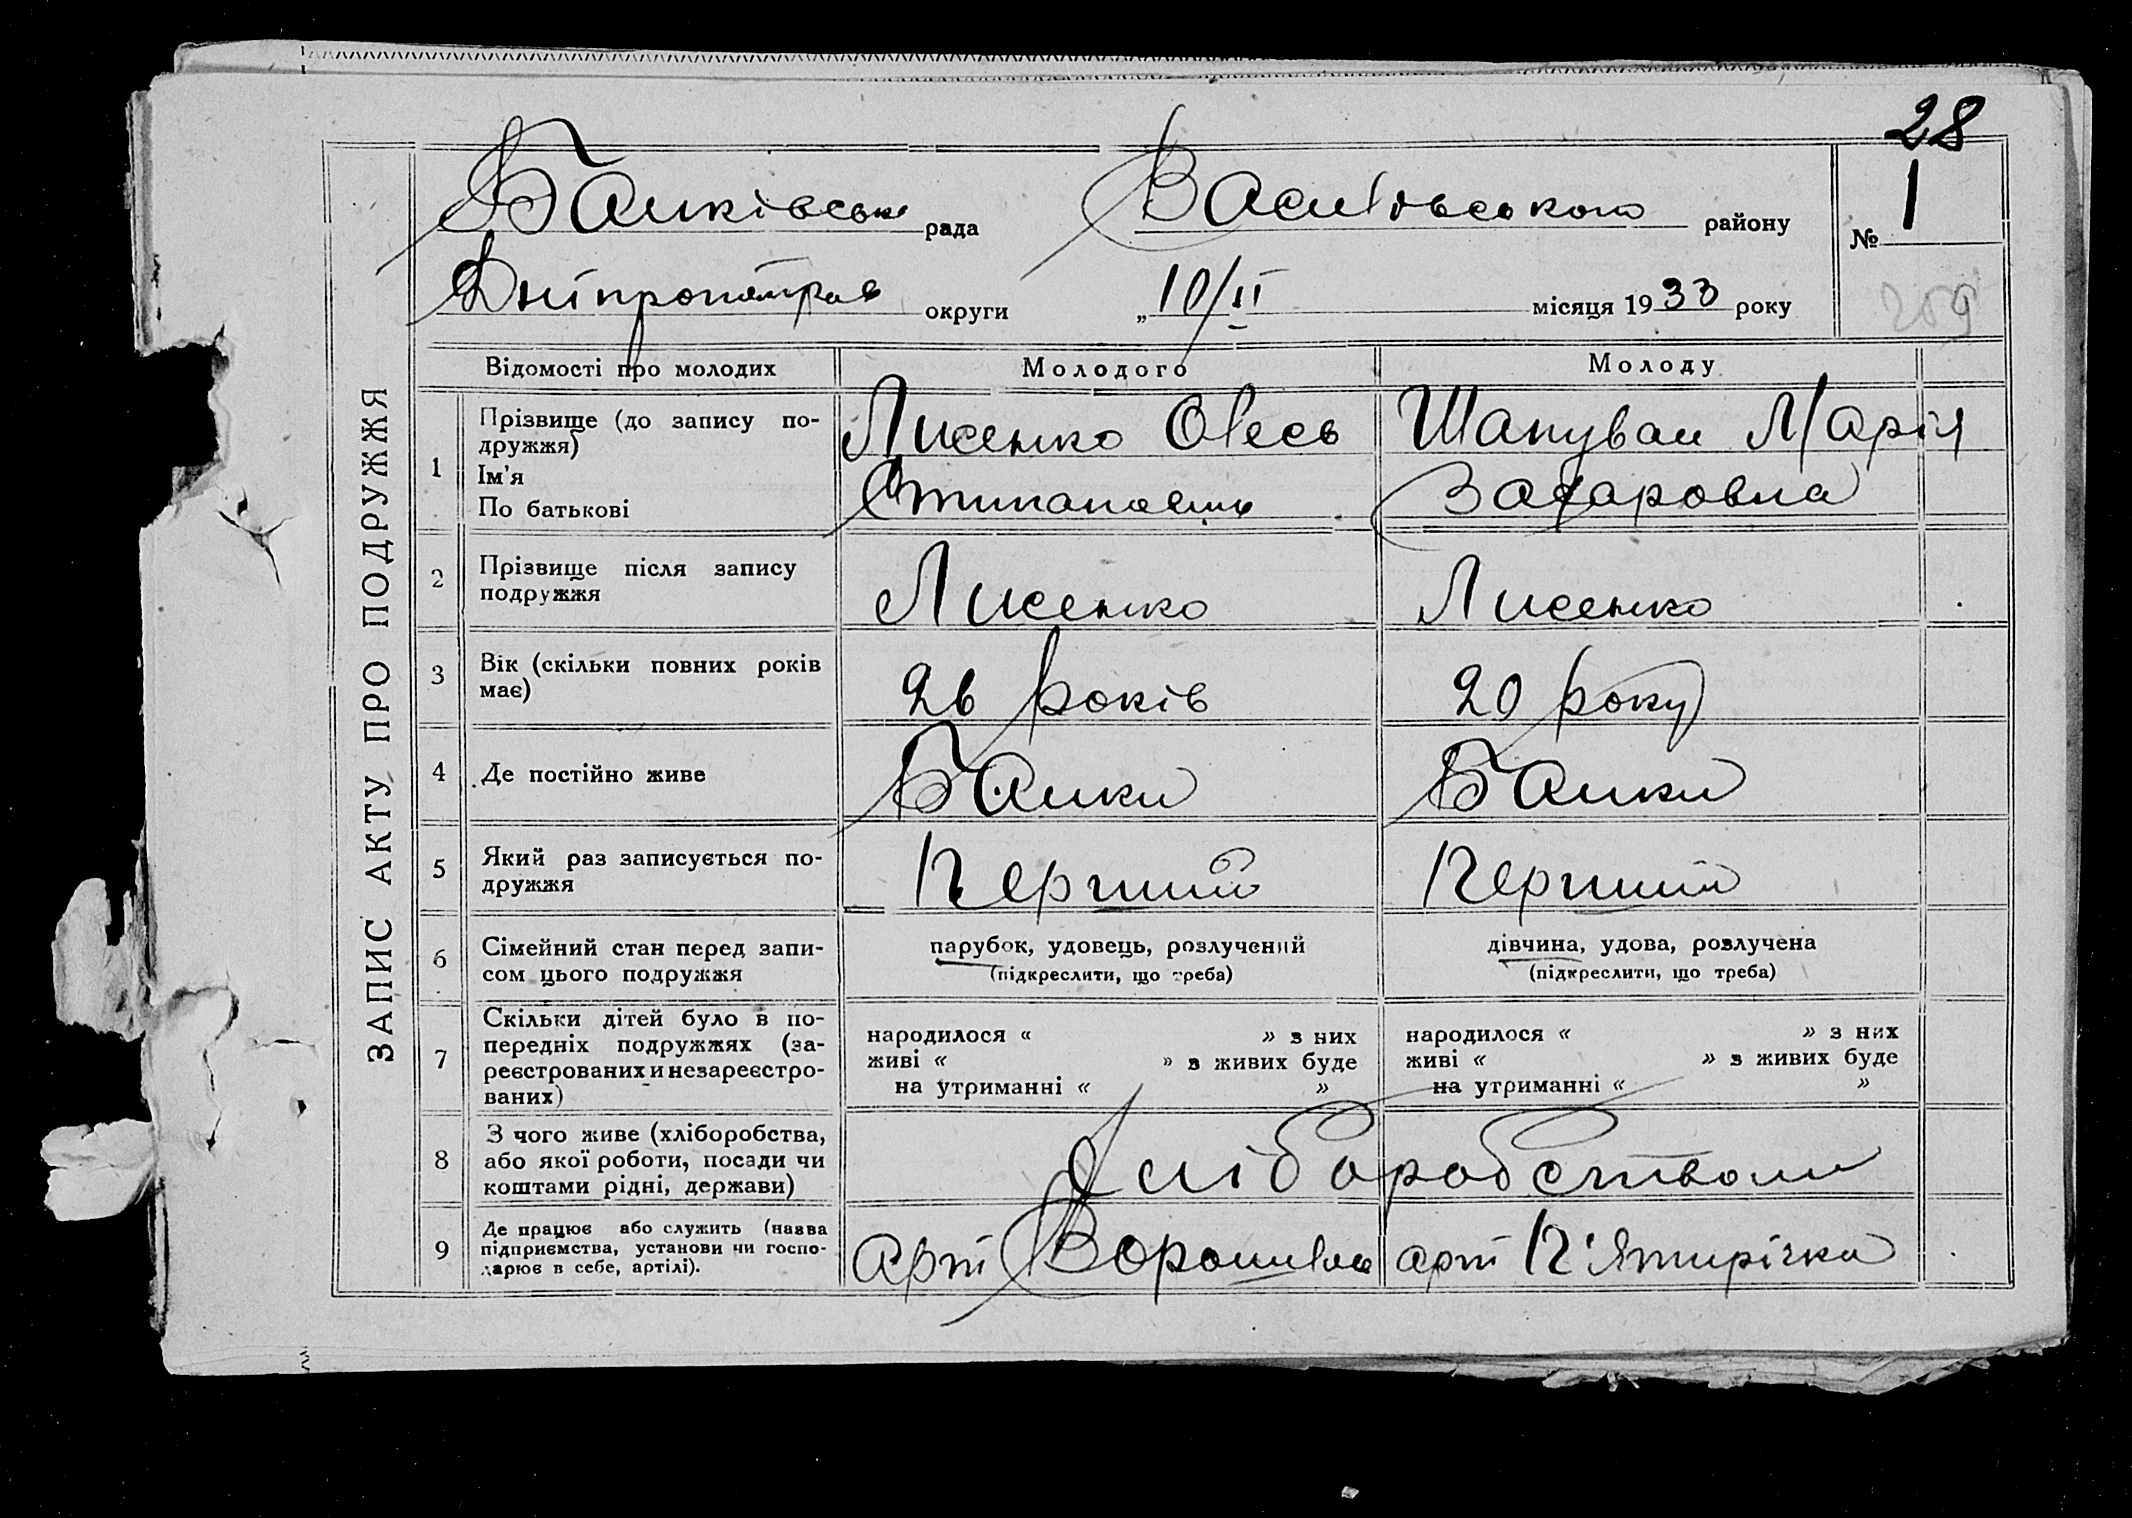 28
Балківська рада Василівського району № 1
Дніпропетров округи „10/II місяця 1933 року
259
ЗАПИС АКТУ ПРО ПОДРУЖЖЯ
Відомості про молодих Молодого Молоду
1 Прізвище (до запису по-
дружжя)
Ім'я
По батькові
Лисенко Олесь
Шаповал Марія
Захаровна
2 Прізвище після запису
подружжя
Лисенко Лисенко
3 Вік (скільки повних років
має)
26 років 20 року
4 Де постійно живе Балки Балки
5 Який раз записується по-
дружжя
Перший Перший
6 Сімейний стан перед запи-
сом цього подружжя
парубок, удовець, розлучений
(підкреслити, що треба)
дівчина, удова, розлучена
(підкреслити, що треба)
7 Скільки дітей було в по-
передніх подружжях (за-
реєстрованих и незареєстро-
ваних)
народилося « » з них
живі « » з живих буде
на утриманні « »
народилося « » з них
живі « » з живих буде
на утриманні « »
8 З чого живе (хліборобства,
або якої роботи, посади чи
коштами рідні, держави)
хліборобством
9 Де працює або служить (назва
підприємства, установи чи госпо-
дарює в себе, артілі).
Арт Ворошилов арт П'ятирічка